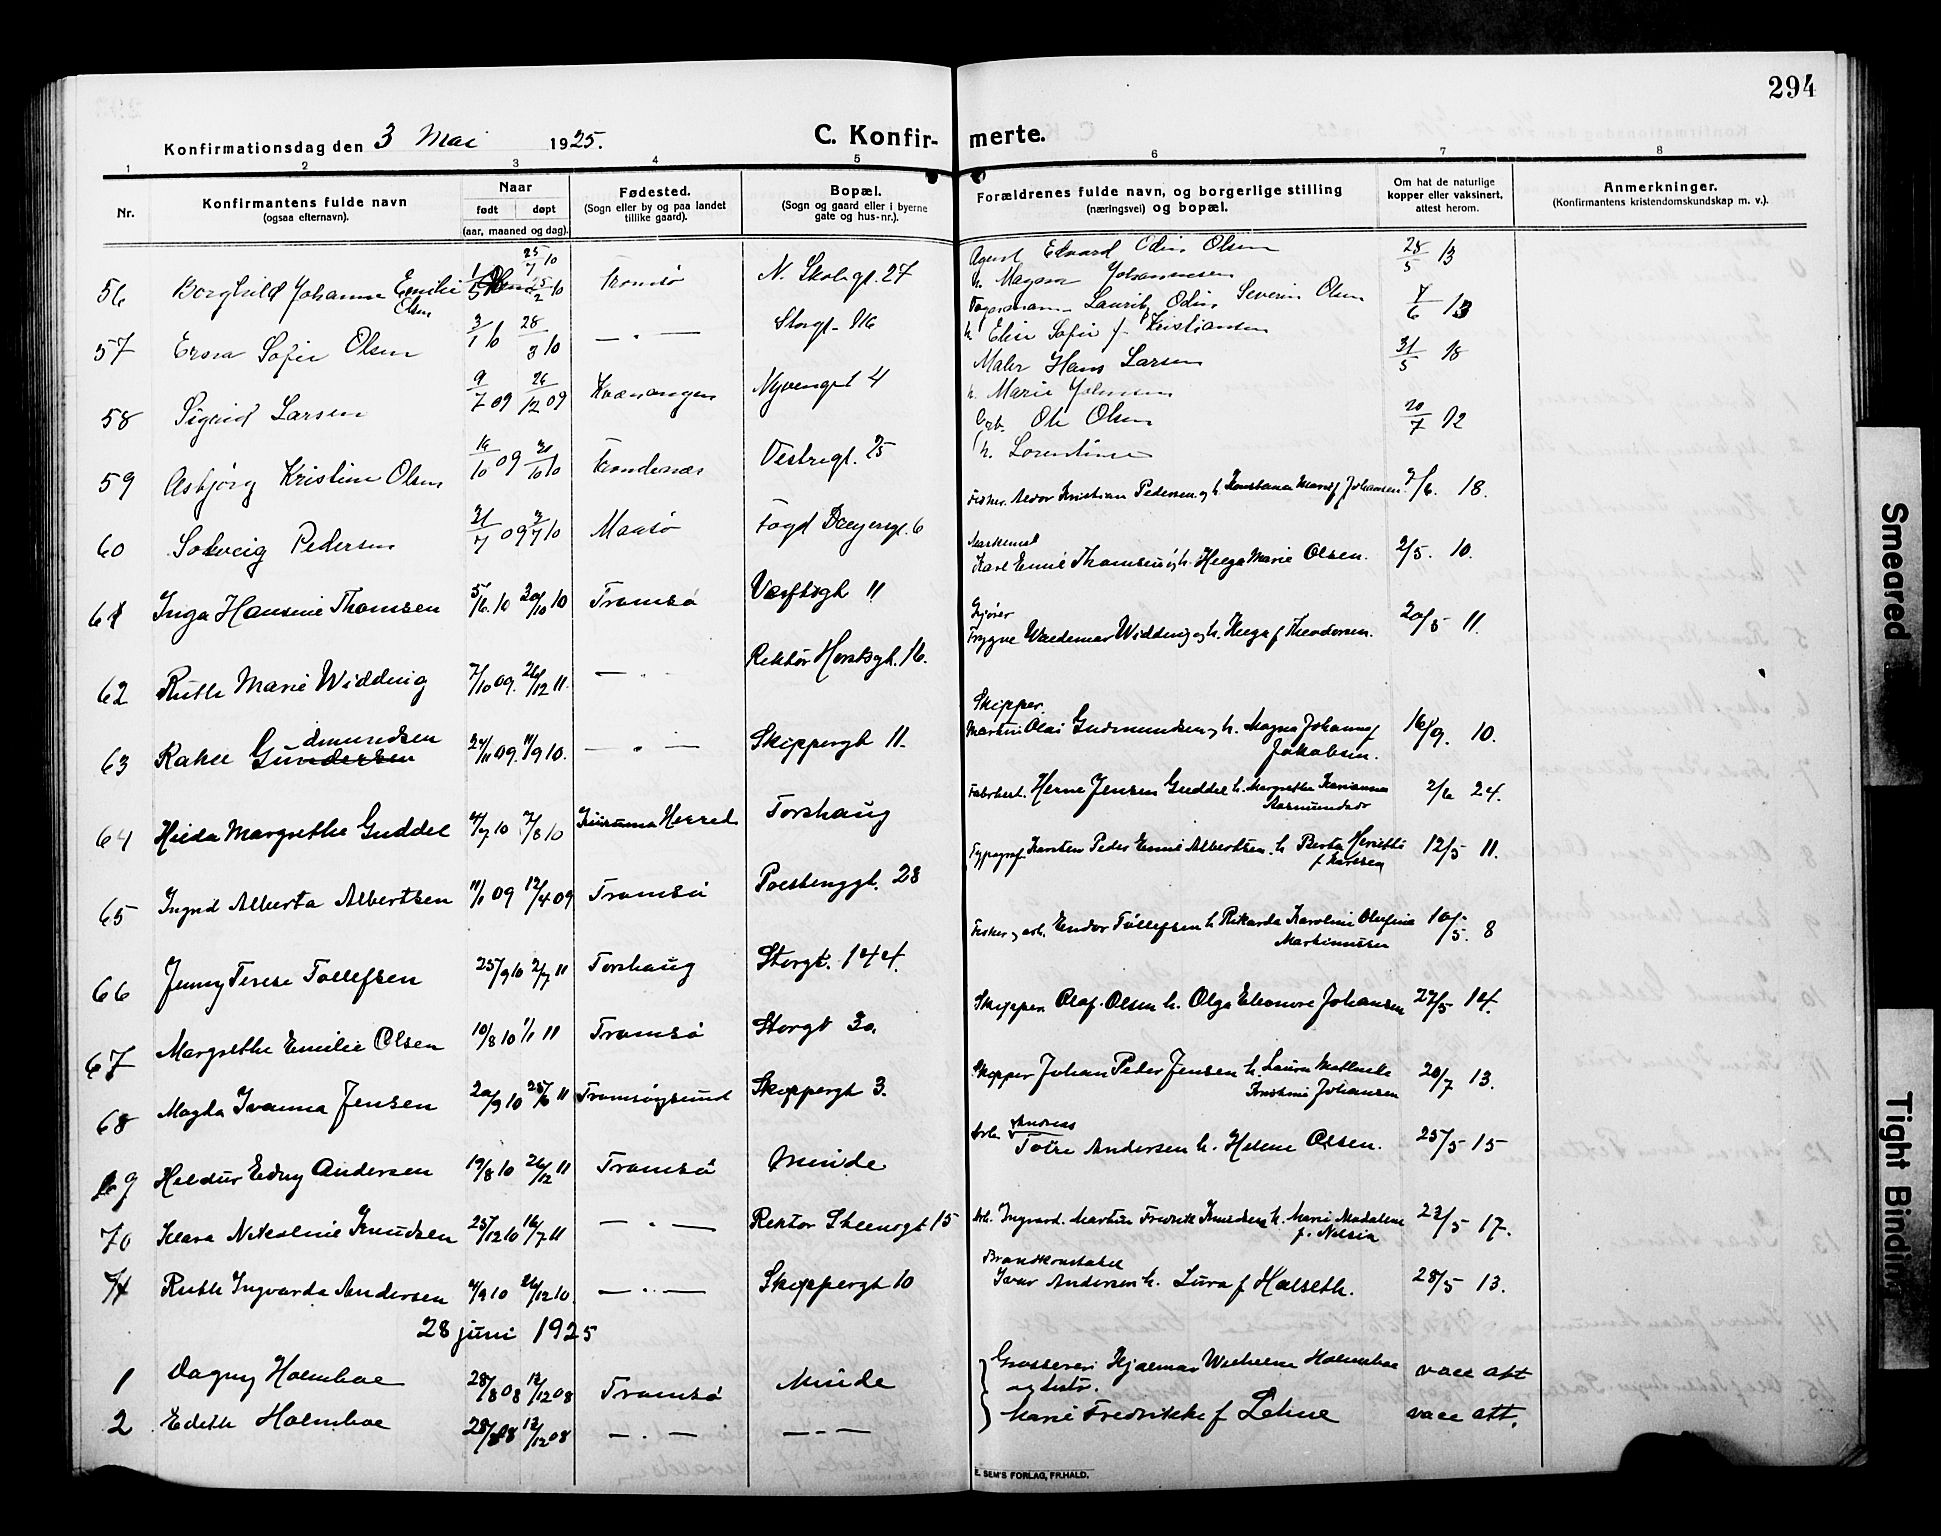 294
Konfirmationsdag den 3 Mai 1925.
C. Konfir- merte.
1 2 3 4 5 6 7 8
Nr.
Konfirmantens fulde navn
(ogsaa efternavn).
Naar
født døpt
(aar, maaned og dag).
Fødested.
(Sogn eller by og paa landet
tillike gaard).
Bopæl.
(Sogn og gaard eller i byerne
gate og hus-nr.).
Forældrenes fulde navn, og borgerlige stilling
(næringsvei) og bopæl.
Om hat de naturlige
kopper eller vaksinert,
attest herom.
Anmerkninger.
(Konfirmantens kristendomskundskap m. v.).
56 Borghild Johanne Emilie Olsen 25/7 10 Tromsø N. Skolegt. 27 Agent Edvard Odin Olsen h. Magna Johannesen 28/5 13
57 Erna Sofie Olsen 3/1 10 28/3 10 — " — Storgt. 116 Lauritz Odin Severin Olsen h. Elise Sofie f. Kristiansen 4/6 13
58 Sigrid Larsen 9/7 09 26/12 09 Kvænangen Nyvengt 4 Maler Hans Larsen h. Marie Johnsen 31/5 18
59 Asbjørg Kristine Olsen 16/10 09 Trondenes Vestregt. 25 Arb. Ole Olsen h. Lorentine 20/7 12
60 Solveig Pedersen 31/7 09 3/7 10 Maasø Fogd Dreyersgt. 6 Fisker Kristian Pedersen og h. Konstanse Marie f. Johansen 7/6. 18.
61 Inga Hansine Thomsen 5/6. 10 20/10 10 Tromsø Værftsgt 11 Maskinist Karl Emil Thomsen og h. Helga Marie Olsen. 2/5. 10.
62 Ruth Marie Widding 7/10 09. 26/12 11. — " — Rektor Horstsgt. 16. Gjører Trygve Waldemar Widding og h. Helga f Theodorsen. 20/5 11.
63 Rakel Gundersen dmundsen 24/11 09. 11/9 10. — " — Skippergt 11. Skipper. Martin Olai Gudmundsen og h. Magna Johanne f Jakobsen. 16/9. 10.
64 Hilda Margrethe Guddal 4/7 10 7/8 10 Kiiruna Herred Torshaug Fabrbest. Herne Jensen Guddal h. Margrethe Karianna Aasmundsdr 2/6 24.
65 Ingrid Alberta Albertsen 11/1 09 12/4 09 Tromsø Parkenggt. 28 Typograf Karsten Peder Emil Albertsen. h. Berta Henriette f. Karlsen 12/5 11.
66 Jenny Terese Tollefsen 25/9 10 2/7 11 Torshaug Storgt. 144. Fisker og arb. Endor Tollefsen h. Rikarda Karoline Olufine Martinussen 10/5. 8
67 Margrethe Emilie Olsen 10/8 10 1/1 11 Tromsø Storgt 30. Skipper Olaf Olsen h. Olga Eleonore Johansen 27/5 14.
68 Magda Ivanna Jensen 20/9 10 25/6 11 Tromsøysund Skippergt 3. Skipper Johan Peder Jensen h. Laura Mathilde Kristine Johansen 20/7 13.
69 Heldur Edny Andersen 19/8 10 26/12 11 Tromsø Minde Arb. Andreas Tolre Andersen h. Helene Olsen. 25/5 15
70 Klara Nikoline Knudsen 25/12 10 16/7 11 — " — Rektor Steensgt 15 Arb. Ingvard Martin Fredrik Knudsen h. Marie Madalene f. Nilsen 23/5 17.
71 Ruth Ingvarda Andersen 4/9 10 26/12 10. — " — Skippergt 10 Brandkonstabel Ivar Andersen h. Lura f Halseth. 28/5 13.
28 juni 1925
1 Dagny Holmboe 28/8 08 13/12 08 Tromsø Minde Grosserer Hjalmar Wilhelm Holmboe og hustr. vacc att
2 Edith Holmboe 28/8 08 13/12 08 — " — — " — Marie Fredrikke f Lehne vacc att.
E. SEM'S FORLAG, FR.HALD.
Smeared
Tight Binding